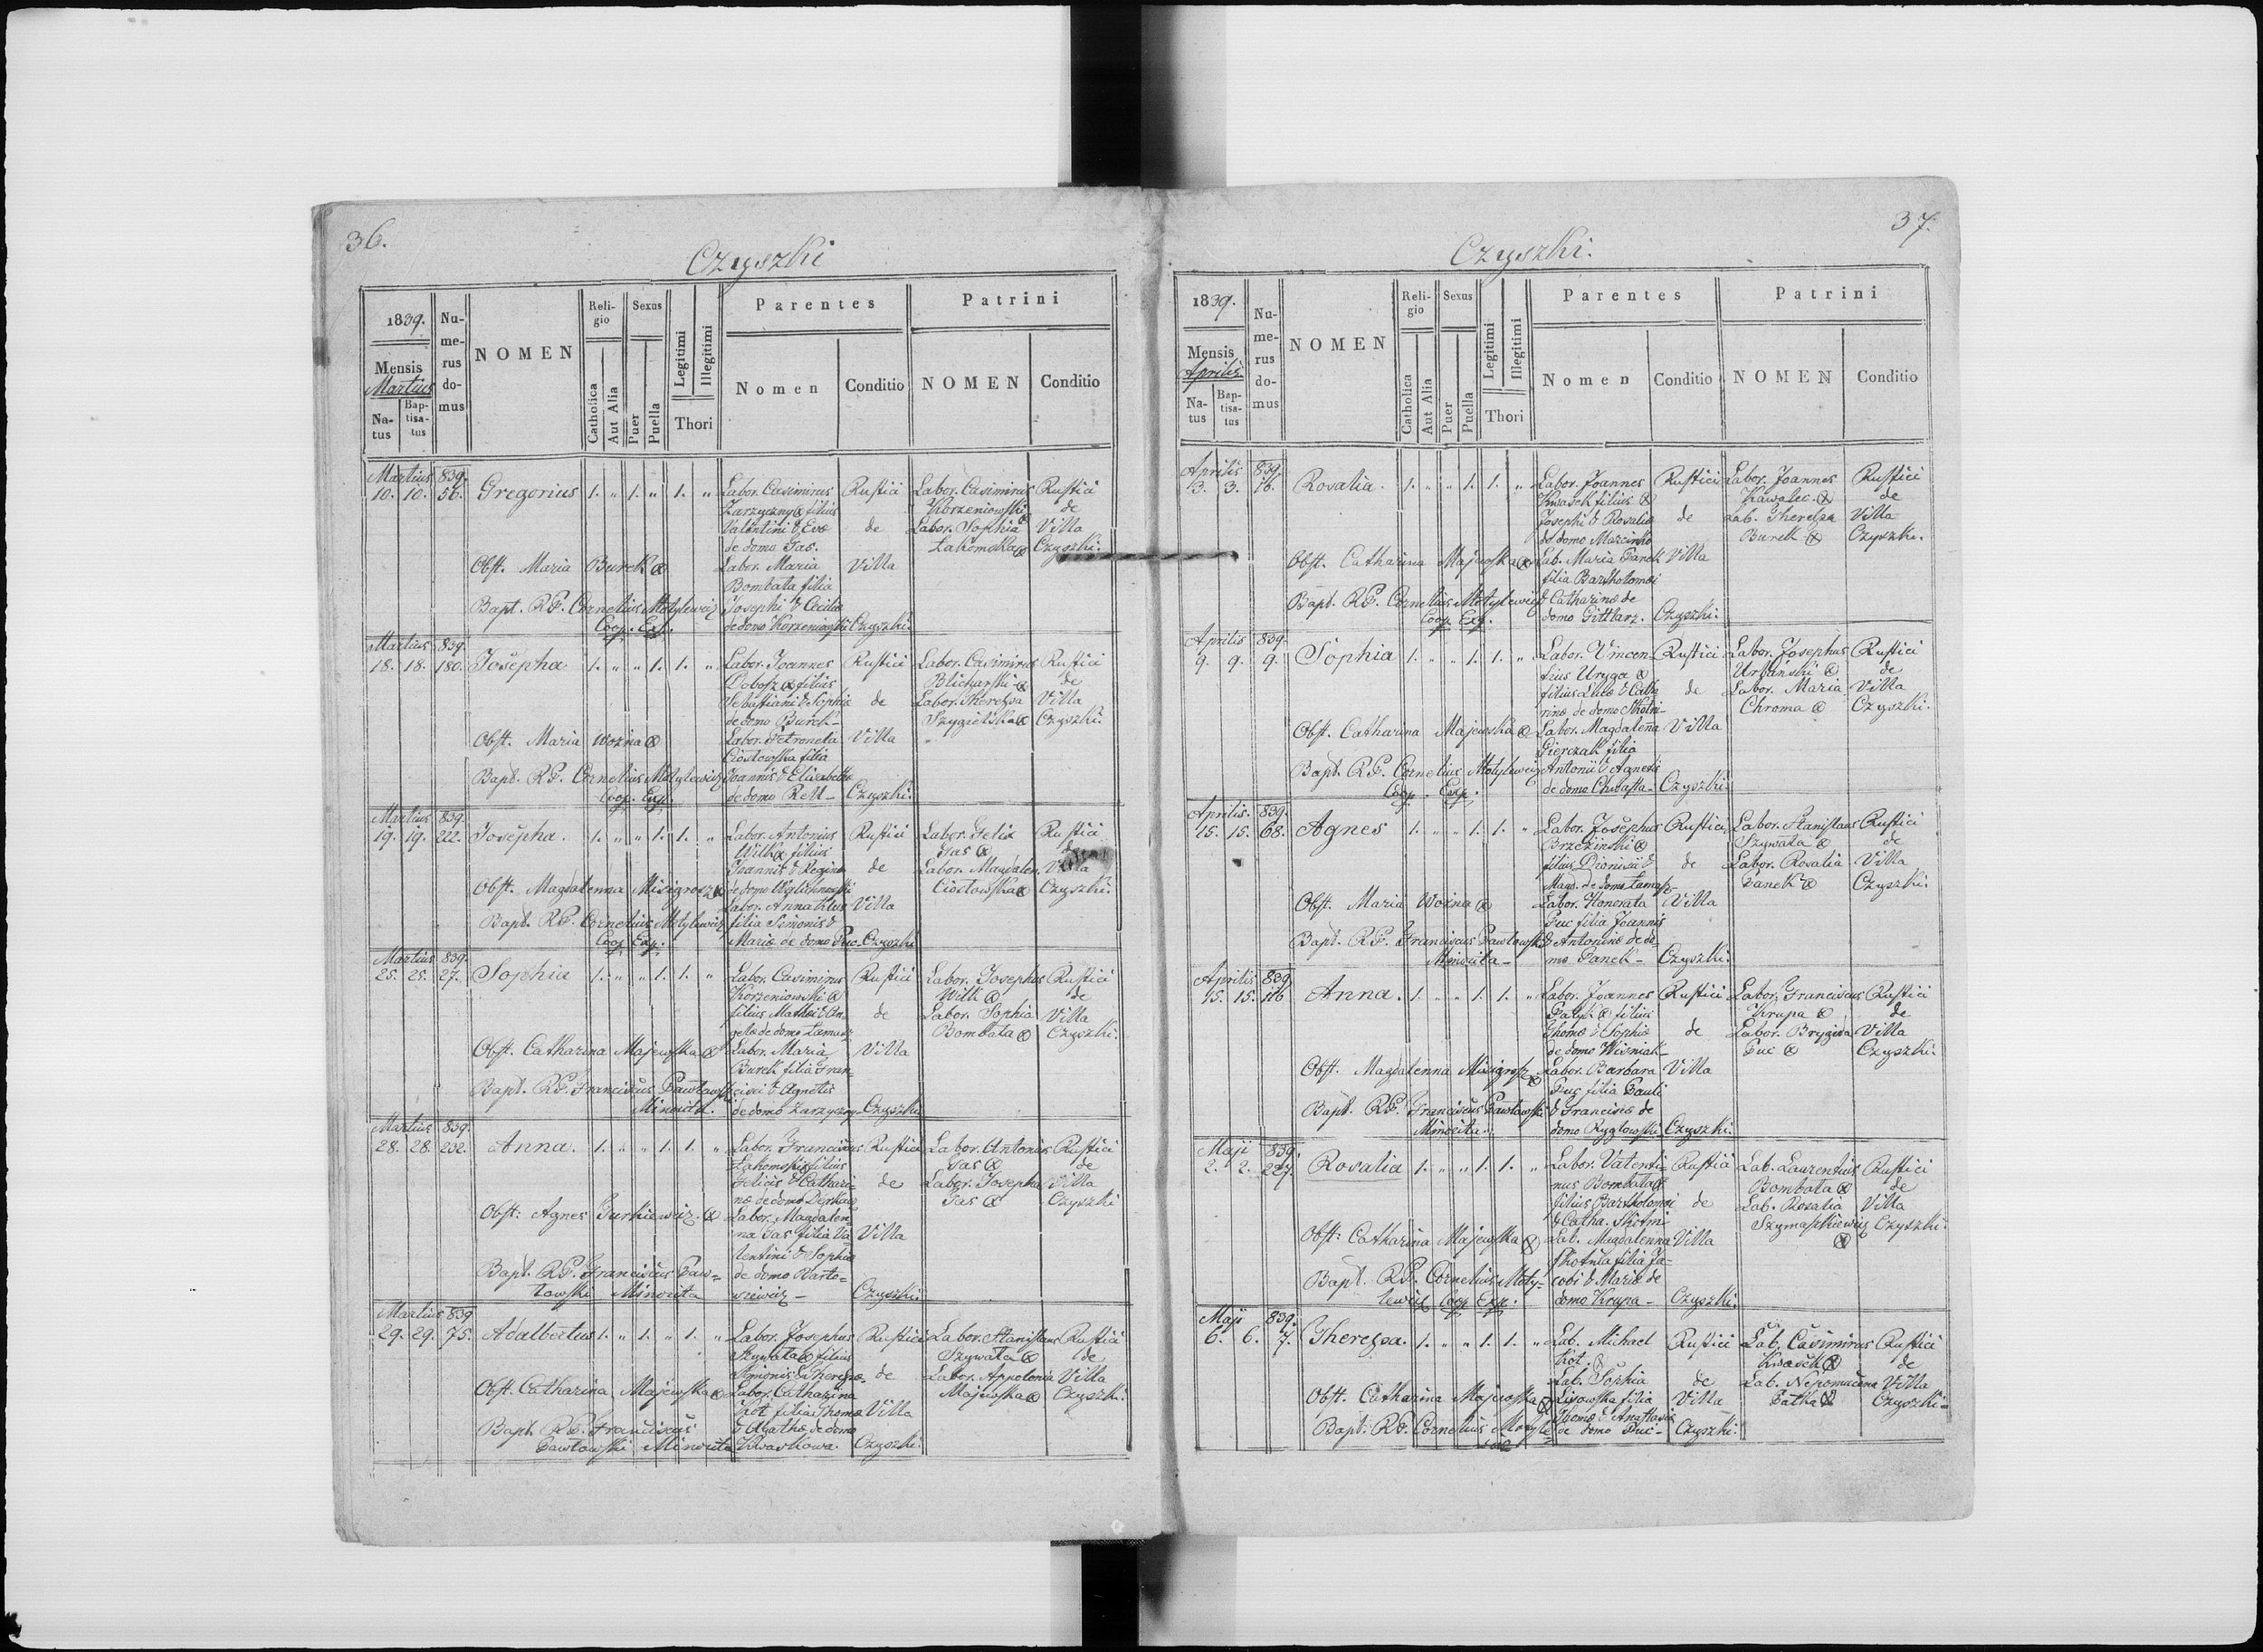 36.
Czyszki
1839.
Mensis
Martius
Na-
tus
Bap-
tisa-
tus
Nu-
me-
rus
do-
mus
NOMEN
Reli-
gio
Catholica
Aut Alia
Sexus
Puer
Puella
Legitimi
Illegitimi
Thori
Parentes
Nomen
Conditio
Patrini
NOMEN
Conditio
Martius 839.
10. 10. 56. Gregorius 1. „ 1. „ 1. „ Labor. Casimirus Rustici Labor. Casimirus Rustici
Zarzyczny filius Korzeniowski de
Valentini & Evæ de Labor. Sophia Villa
de domo Gas. Lakomska Czyszki.
Obst. Maria Burek Labor. Maria Villa
Bombała filia
Bapt. RP. Cornelius Motylewicz Josephi & Cecilia
Coop. Exp. de domo Korzeniowski Czyszki.
Martius 839.
18. 18. 180. Josepha 1. „ „ 1. 1. „ Labor. Joannes Rustici Labor. Casimirus Rustici
Dobosz filius Blicharski de
Sebastiani & Sophia de Labor. Theressa Villa
de domo Burek Szygielska Czyszki.
Obst. Maria Woźna Labor. Petronela Villa
Ciosłowska filia
Bapt. RP. Cornelius Motylewicz Joannis & Elisabetha
Coop. Exp. de domo Rell Czyszki.
Martius 839.
19. 19. 222. Josepha. 1. „ „ 1. 1. „ Labor. Antonius Rustici Labor. Felix Rustici
Wilk filius Gas de
Joannis & Regina de Labor. Magdalen. Villa
Obst. Magdalenna Misigrosz de domo Ciosłowska Czyszki.
Labor. Anna Villa
Bapt. RP. Cornelius Motylewicz filia Simonis &
Coop Exp. Mariæ de domo Puc Czyszki
Martius 839.
25. 25. 27. Sophia 1. „ „ 1. 1. „ Labor. Casimirus Rustici Labor. Josephus Rustici
Korzeniowski Wilk de
filius Mathei & An- de Labor. Sophia Villa
de domo Bombała Czyszki.
Obst. Catharina Majewska Labor. Maria Villa
Burek filia Fran-
Bapt. RP. Franciscus Pawłowski cisci & Agnetis
Minorita. de domo Zarzyczny Czyszki
Martius 839.
28. 28. 232. Anna. 1. „ „ 1. 1. „ Labor. Franciscus Rustici Labor. Antonius Rustici
Lakomski filius Gas de
Felicis & Cathari- de Labor. Josepha Villa
næ de domo Gas Czyszki
Obst: Agnes Gurkiewicz Labor. Magdalen-
na Gas filia Va- Villa
lentini & Sophia
Bapt. RP. Franciscus Paw- de domo Barto-
łowski Minorita Czyszki
Martius 839
29. 29. 75. Adalbertus 1. „ 1. „ 1. „ Labor. Josephus Rustici Labor. Stanislaus Rustici
Szywała filius Szywała de
Simonis & Theressa de Labor. Appolonia Villa
Obst. Catharina Majewska Labor. Catharina Majewska Czyszki.
Kot filia Thoma Villa
Bapt. RP. Franciscus & Agathæ de domo
Pawłowski Minorita Czyszki.
37.
Czyszki.
1839.
Mensis
Aprilis
Na-
tus
Bap-
tisa-
tus
Nu-
me-
rus
do-
mus
NOMEN
Reli-
gio
Catholica
Aut Alia
Sexus
Puer
Puella
Legitimi
Illegitimi
Thori
Parentes
Nomen
Conditio
Patrini
NOMEN
Conditio
Aprilis 839.
3. 3. 76. Rosalia. 1. „ „ 1. 1. „ Labor. Joannes Rustici Labor. Joannes Rustici
Kwasek filius Kawalec. de
Josephi & Rosalia de Lab. Theressa Villa
de domo Marcinko Burek Czyszki.
Obst. Catharina Majewska Lab. Maria Panek Villa
filia Bartholomei
Bapt. RP. Cornelius Motylewicz & Catharinæ de
Coop. Exp. domo Gittlarz. Czyszki.
Aprilis 839.
9. 9. 9. Sophia 1. „ „ 1. 1. „ Labor. Vincen- Rustici Labor. Josephus Rustici
tius Uryga Urbański de
filius Lucæ & Catha de Labor. Maria Villa
rinæ de domo Skotni- Chroma Czyszki.
Obst. Catharina Majewska Labor. Magdalena Villa
Gierczak filia
Bapt. RP. Cornelius Motylewicz Antonii & Agnetis
Coop. Exp. de domo Czyszki.
Aprilis. 839.
15. 15. 68. Agnes 1. „ „ 1. 1. „ Labor. Josephus Rustici Labor. Stanislaus Rustici
Brzeziński Szywała de
filius Dionisii & de Labor. Rosalia Villa
Magd. de domo Panek Czyszki.
Obst. Maria Woźna Labor. Honorata Villa
Puc filia Joannis
Bapt. RP. Franciscus Pawłowski & Antoninæ de do-
Minorita mo Panek Czyszki.
Aprilis 839.
15. 15. 116 Anna. 1. „ „ 1. 1. „ Labor. Joannes Rustici Labor. Franciscus Rustici
filius Krupa de
Thomæ & Sophiæ de Labor. Brygida Villa
de domo Wiśniak Puc Czyszki.
Obst. Magdalenna Misigrosz Labor. Barbara Villa
Puc filia Pauli
Bapt. RP. Franciscus Pawłowski & Francisca de
Minorita. domo Ryglowski Czyszki.
Maji 839.
2. 2. 227. Rosalia 1. „ „ 1. 1. „ Labor. Valenti- Rustici Lab. Laurentius Rustici
nus Bombała Bombała de
filius Bartholomei de Lab. Rosalia Villa
& Catha. Skotni Szymaszkiewicz Czyszki.
Obst: Catharina Majewska Lab. Magdalenna Villa
Skotnia filia Ja-
Bapt. RP. Cornelius Moty- cobi & Mariæ de
lewicz Coop Exp. domo Krupa Czyszki.
Maji 839.
6. 6. 7. Theressa. 1. „ „ 1. 1. „ Lab. Michael Rustici Lab. Casimirus Rustici
Kot. Kwasek de
Lab. Sophia de Lab. Nepomucena Villa
Obst. Catharina Majewska Lisowska filia Villa Czyszki
Thomæ & Anastasia
Bapt. RP. Cornelius Motyle- de domo Puc Czyszki.